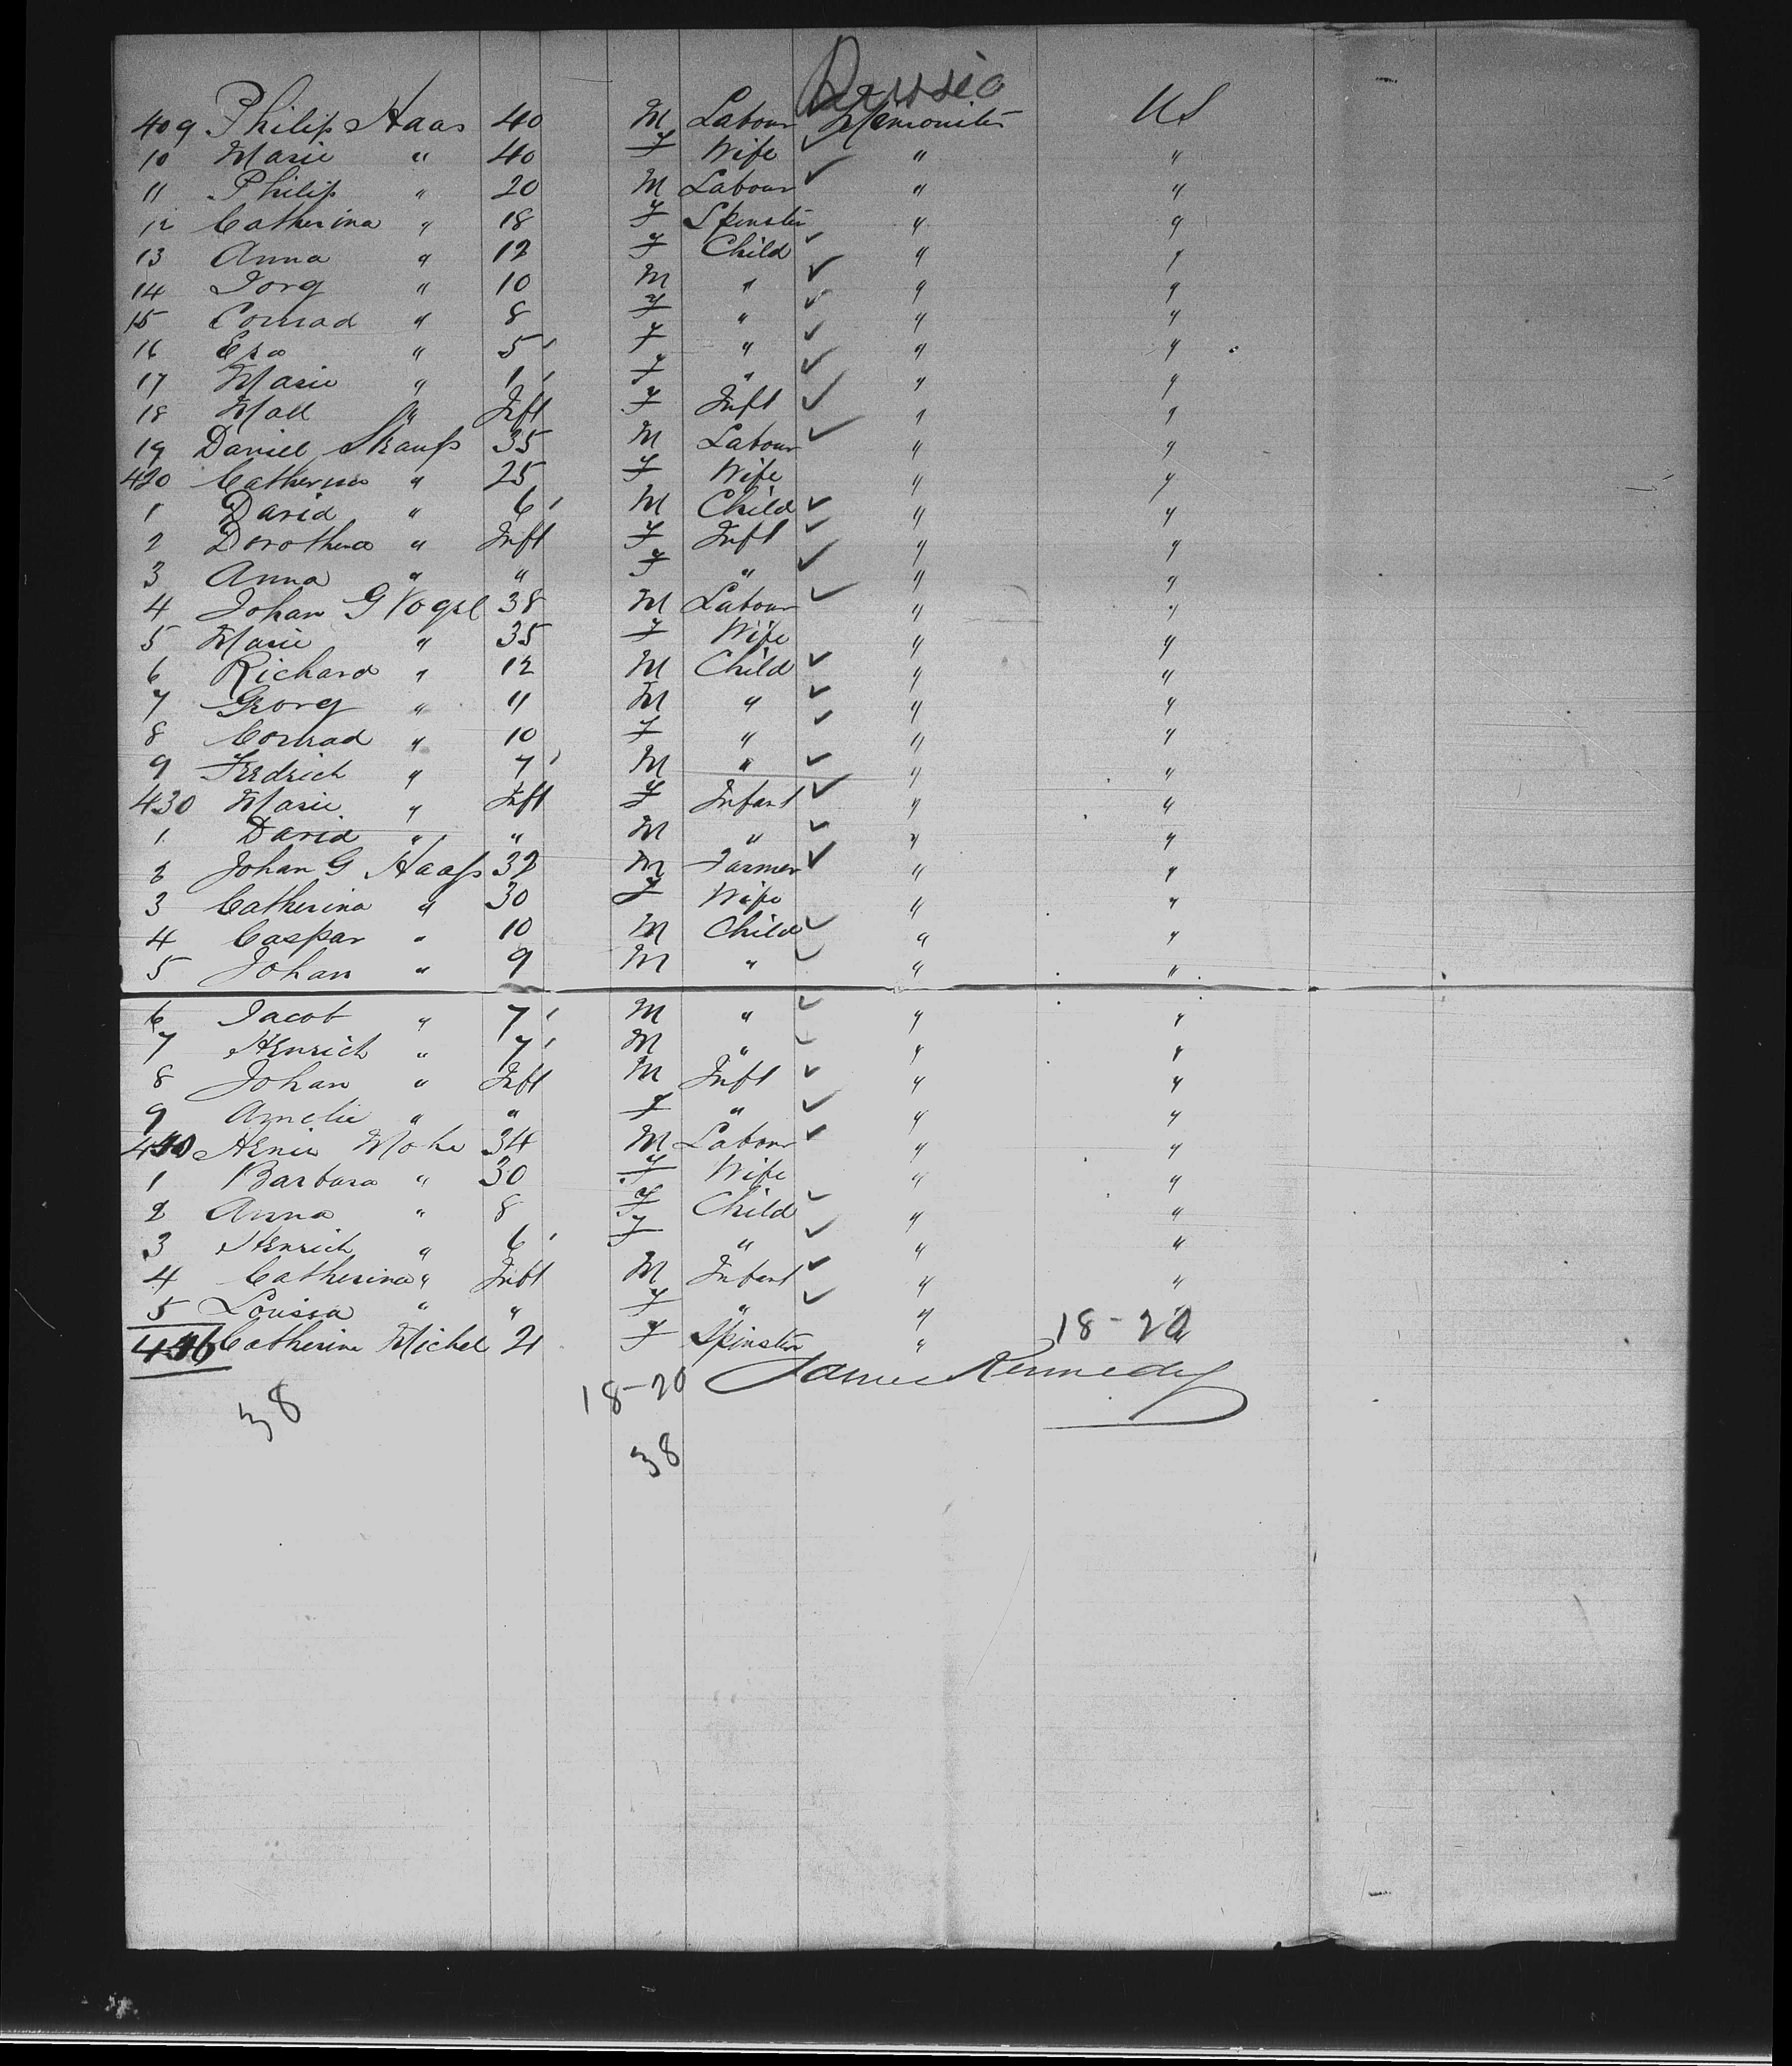 Russia
409 Philip Haas 40 M Labour Mennonites US
10 Marie " 40 F Wife " "
11 Philip " 20 M Labour " "
12 Catherina " 18 F Spinster " "
13 Anna " 12 F Child " "
14 Jorg " 10 M " " "
15 Conrad " 8 F " " "
16 Eva " 5 F " " "
17 Marie " 1 F " " "
18 Mall " Inft F Inft " "
19 Daniel Strauss 35 M Labour " "
420 Catherina " 25 F Wife " "
1 David " 6 M Child " "
2 Dorothea " Inft F Inft " "
3 Anna " " F " " "
4 Johan G Vogel 38 M Labour " "
5 Marie " 35 F Wife " "
6 Richard " 12 M Child " "
7 Georg " 11 M " " "
8 Conrad " 10 F " " "
9 Fredrich " 7 M " " "
430 Marie " Inft F Infant " "
1 David " " M " " "
2 Johan G Haass 32 M Farmer " "
3 Catherina " 30 F Wife " "
4 Caspar " 10 M Child " "
5 Johan " 9 M " " "
6 Jacob " 7 M " " "
7 Henrich " 7 M " " "
8 Johan " Inft M Inft " "
9 Amelie " " F " " "
440 34 M Labour " "
1 Barbara " 30 F Wife " "
2 Anna " 8 F Child " "
3 Henrich " 6 F " " "
4 Catherina " Inft M Infant " "
5 Louisa " " F " " "
446 Catherine Michel 21 F Spinster " "
18-20
18-20 James Kennedy
38
38